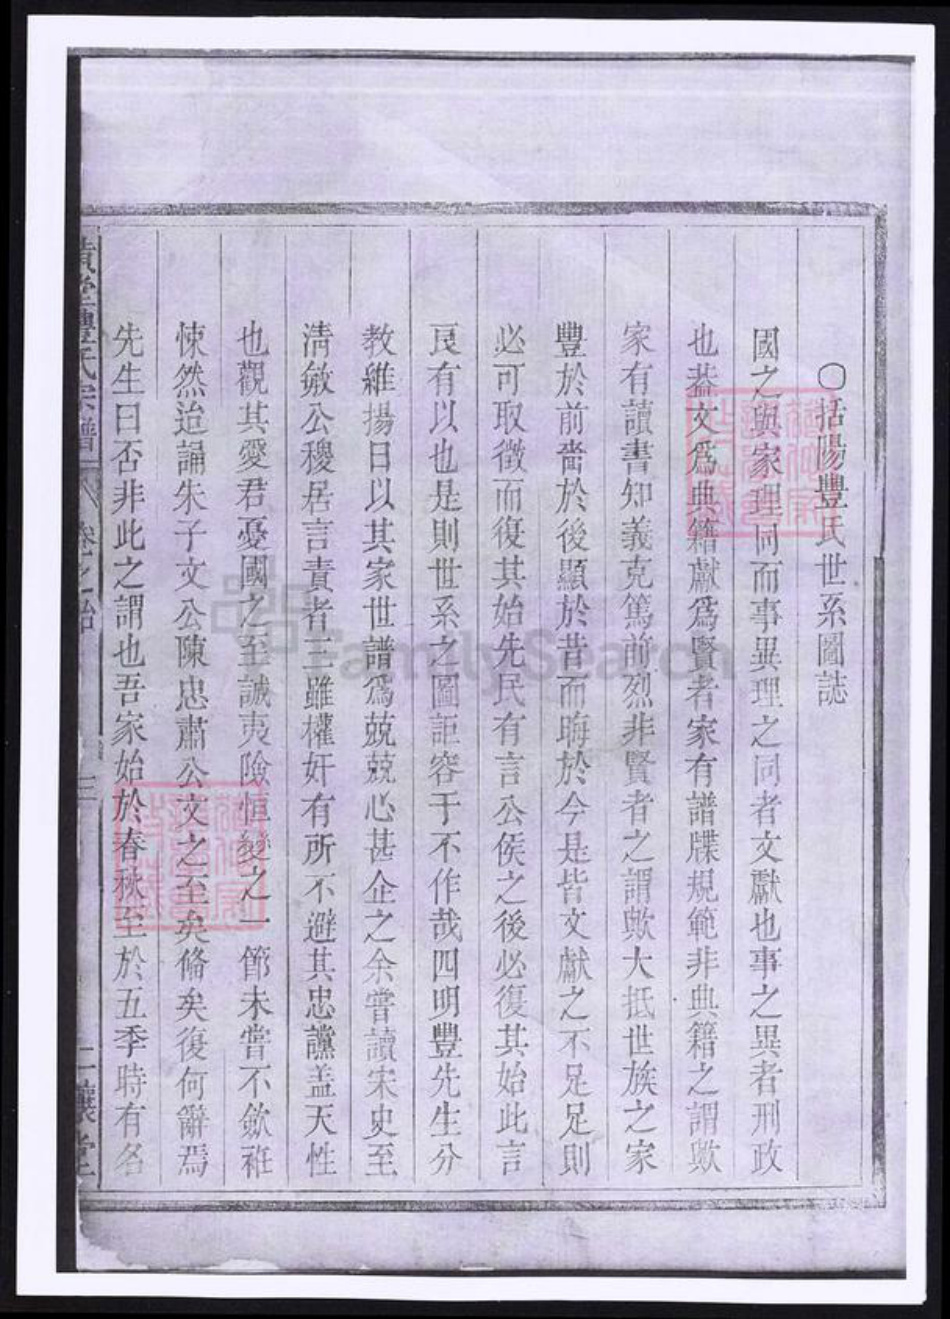 〇括陽豐氏世系圖誌
國之與家理同而事異理之同者文獻也事之異者刑政
也葢文爲典籍獻爲賢者家有譜牒規範非典籍之謂歟
家有讀書知義克篤前烈非賢者之謂歟大抵世族之家
豐於前嗇於後顯於昔而晦於今是皆文獻之不足足則
必可取徵而復其始先民有言公侯之後必復其始此言
良有以也是則世系之圖詎容于不作哉四明豐先生分
教維揚日以其家世譜爲兢兢心甚企之余嘗讀宋史至
清敏公稷居言責者三雖權奸有所不避其忠讜盖天性
也觀其愛君憂國之至誠夷險恒變之一節未嘗不歛袵
悚然迨誦朱子文公陳忠肅公文之至矣俻矣復何辭焉
先生曰否非此之謂也吾家始於春秋至於五季時有名
豐氏宗譜 卷之 三
FamilySearch